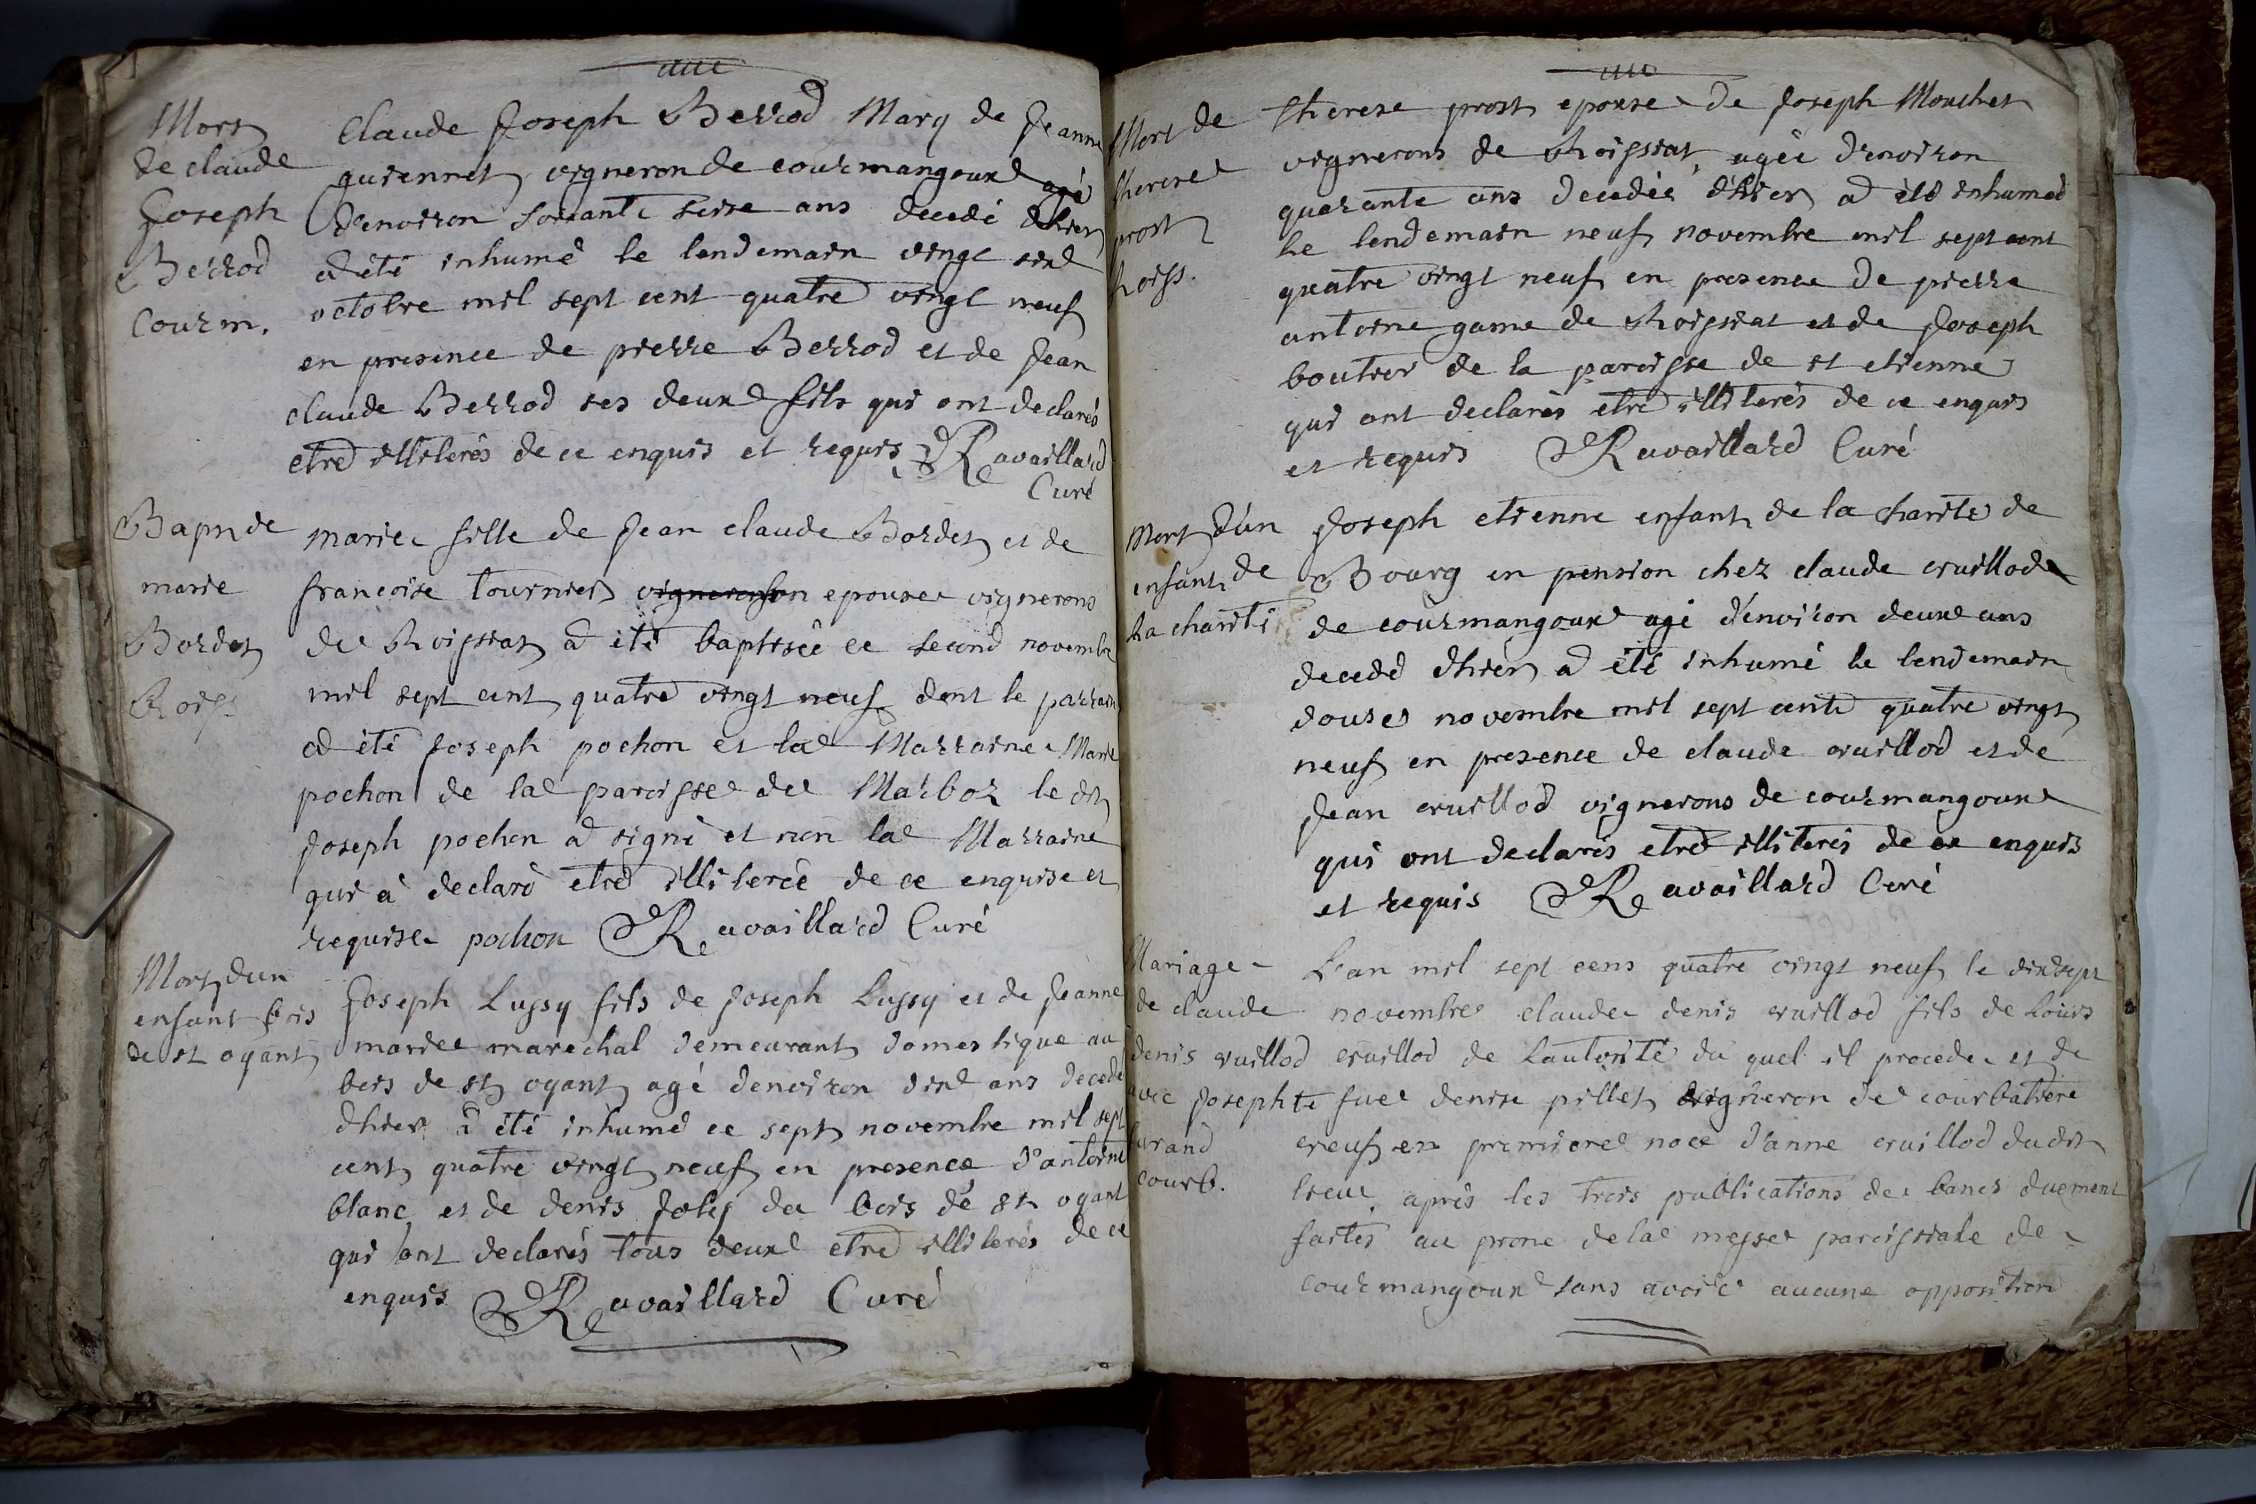 Mort
de claude
Joseph
Berrod
Courm.
Claude Joseph Berrod Mary de Jeanne
guiennet vigneron de courmangoux agé
d'environ soixante seise ans decedé d'hier
a été inhumé le lendemain vingt six
octobre mil sept cent quatre vingt neuf
en presence de pierre Berrod et de Jean
claude Berrod ses deux fils qui ont declarés
etre illiterés de ce enquis et requis Ravaillard
Curé
Bapt de
marie
Bordet
Roiss.
marie fille de Jean claude Bordet et de
françoise tournier epouse vignerons
de Roissiat a été baptisée ce second novembre
mil sept cent quatre vingt neuf dont le parrain
a été Joseph pochon et la Marraine Marie
pochon de la paroisse de Marboz le dit
Joseph pochon a signé et non la Marraine
qui à declaré etre illiterée de ce enquise et
requise pochon Ravaillard Curé
Mort d'un
enfant bois
de st oyant
Joseph Lussy fils de Joseph Lussy et de Jeanne
mariee marechal demeurant domestique au
bois de st oyant agé denviron dix ans decedé
dhier à été inhumé ce sept novembre mil sept
cent quatre vingt neuf en presence d'antoine
blanc et de denis Joly du bois de st oyant
qui ont declarés tous deux etre illiterés de ce
enquis Ravaillard Curé
Mort de
therese
prost
Roiss.
therese prost epouse de Joseph Mouchet
vignerons de Roissiat agée d'environ
quarante ans decedée d'hier a été inhumed
le lendemain neuf novembre mil sept cent
quatre vingt neuf en presence de pierre
antoine game de Roissiat et de Joseph
boutier de la paroisse de st etienne
qui ont declarés etre illiterés de ce enquis
et requis Ravaillard Curé
Mort d'un
enfant de
La charité
Joseph etienne enfant de la charité de
Bourg en pension chez claude cruillod
de courmangoux agé d'environ deux ans
decedé d'hier a été inhumé le lendemain
douse novembre mil sept cent quatre vingt
neuf en presence de claude cruillod et de
Jean cruillod vignerons de courmangoux
qui ont declarés etre illiterés de ce enquis
et requis Ravaillard Curé
Mariage
de claude
denis cruillod
avec Josephte
durand
courb.
L'an mil sept cens quatre vingt neuf le dixsept
novembre claude denis cruillod fils de Louis
cruillod de Lautorité du quel il procede et de
fue denise pillet vigneron de courbatiere
veuf en premiere noce d'anne cruillod dudit
lieu après les trois publications de bancs duement
faites au prone de la messe paroissiale de
courmangoux sans avoir aucune opposition